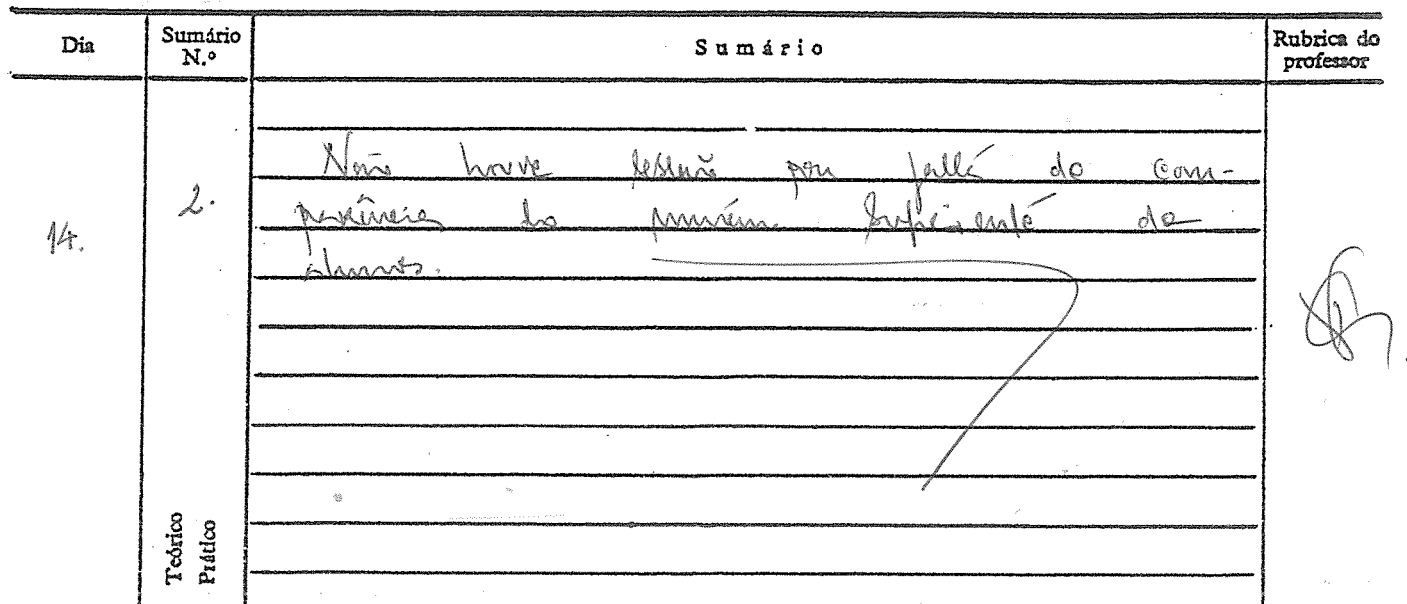 Dia
Sumário N.º
Sumário
Rubrica do professor
14.
2.
Não houve sessão por falta de com-
parência do número suficiente de
alunos.
Teórico
Prático